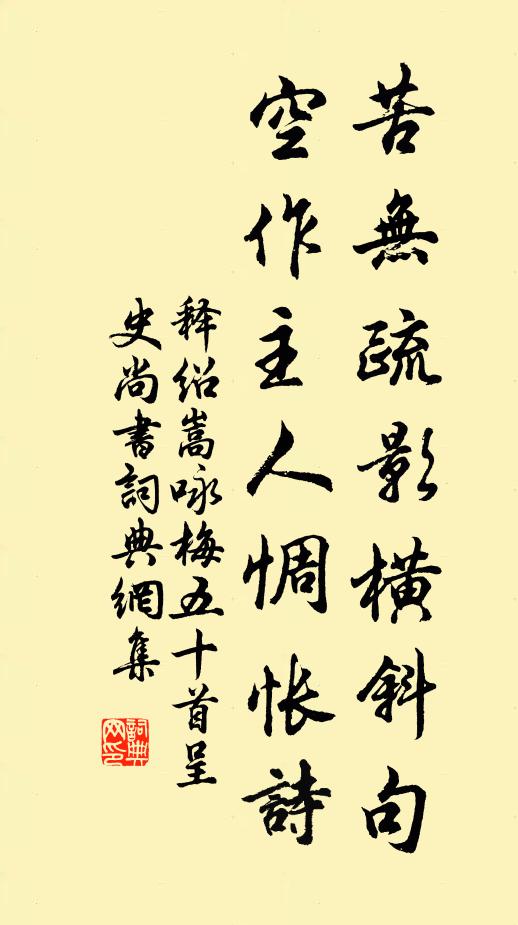 苦無疏影橫斜句
空作主人惆怅詩
释绍嵩咏梅五十首呈
史尚書詞典網集
詞典
网印